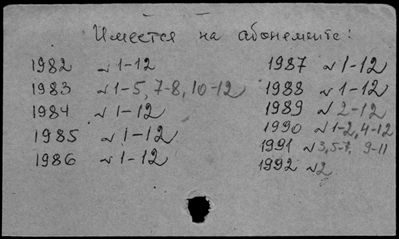 Имеется на абонементе:
1982 № 1-12
1983 № 1-5, 7-8, 10-12
1984 № 1-12
1985 № 1-12
1986 № 1-12
1987 № 1-12
1988 № 1-12
1989 № 2-12
1990 № 1-2, 4-12
1991 № 3, 5-7, 9-11
1992 № 2